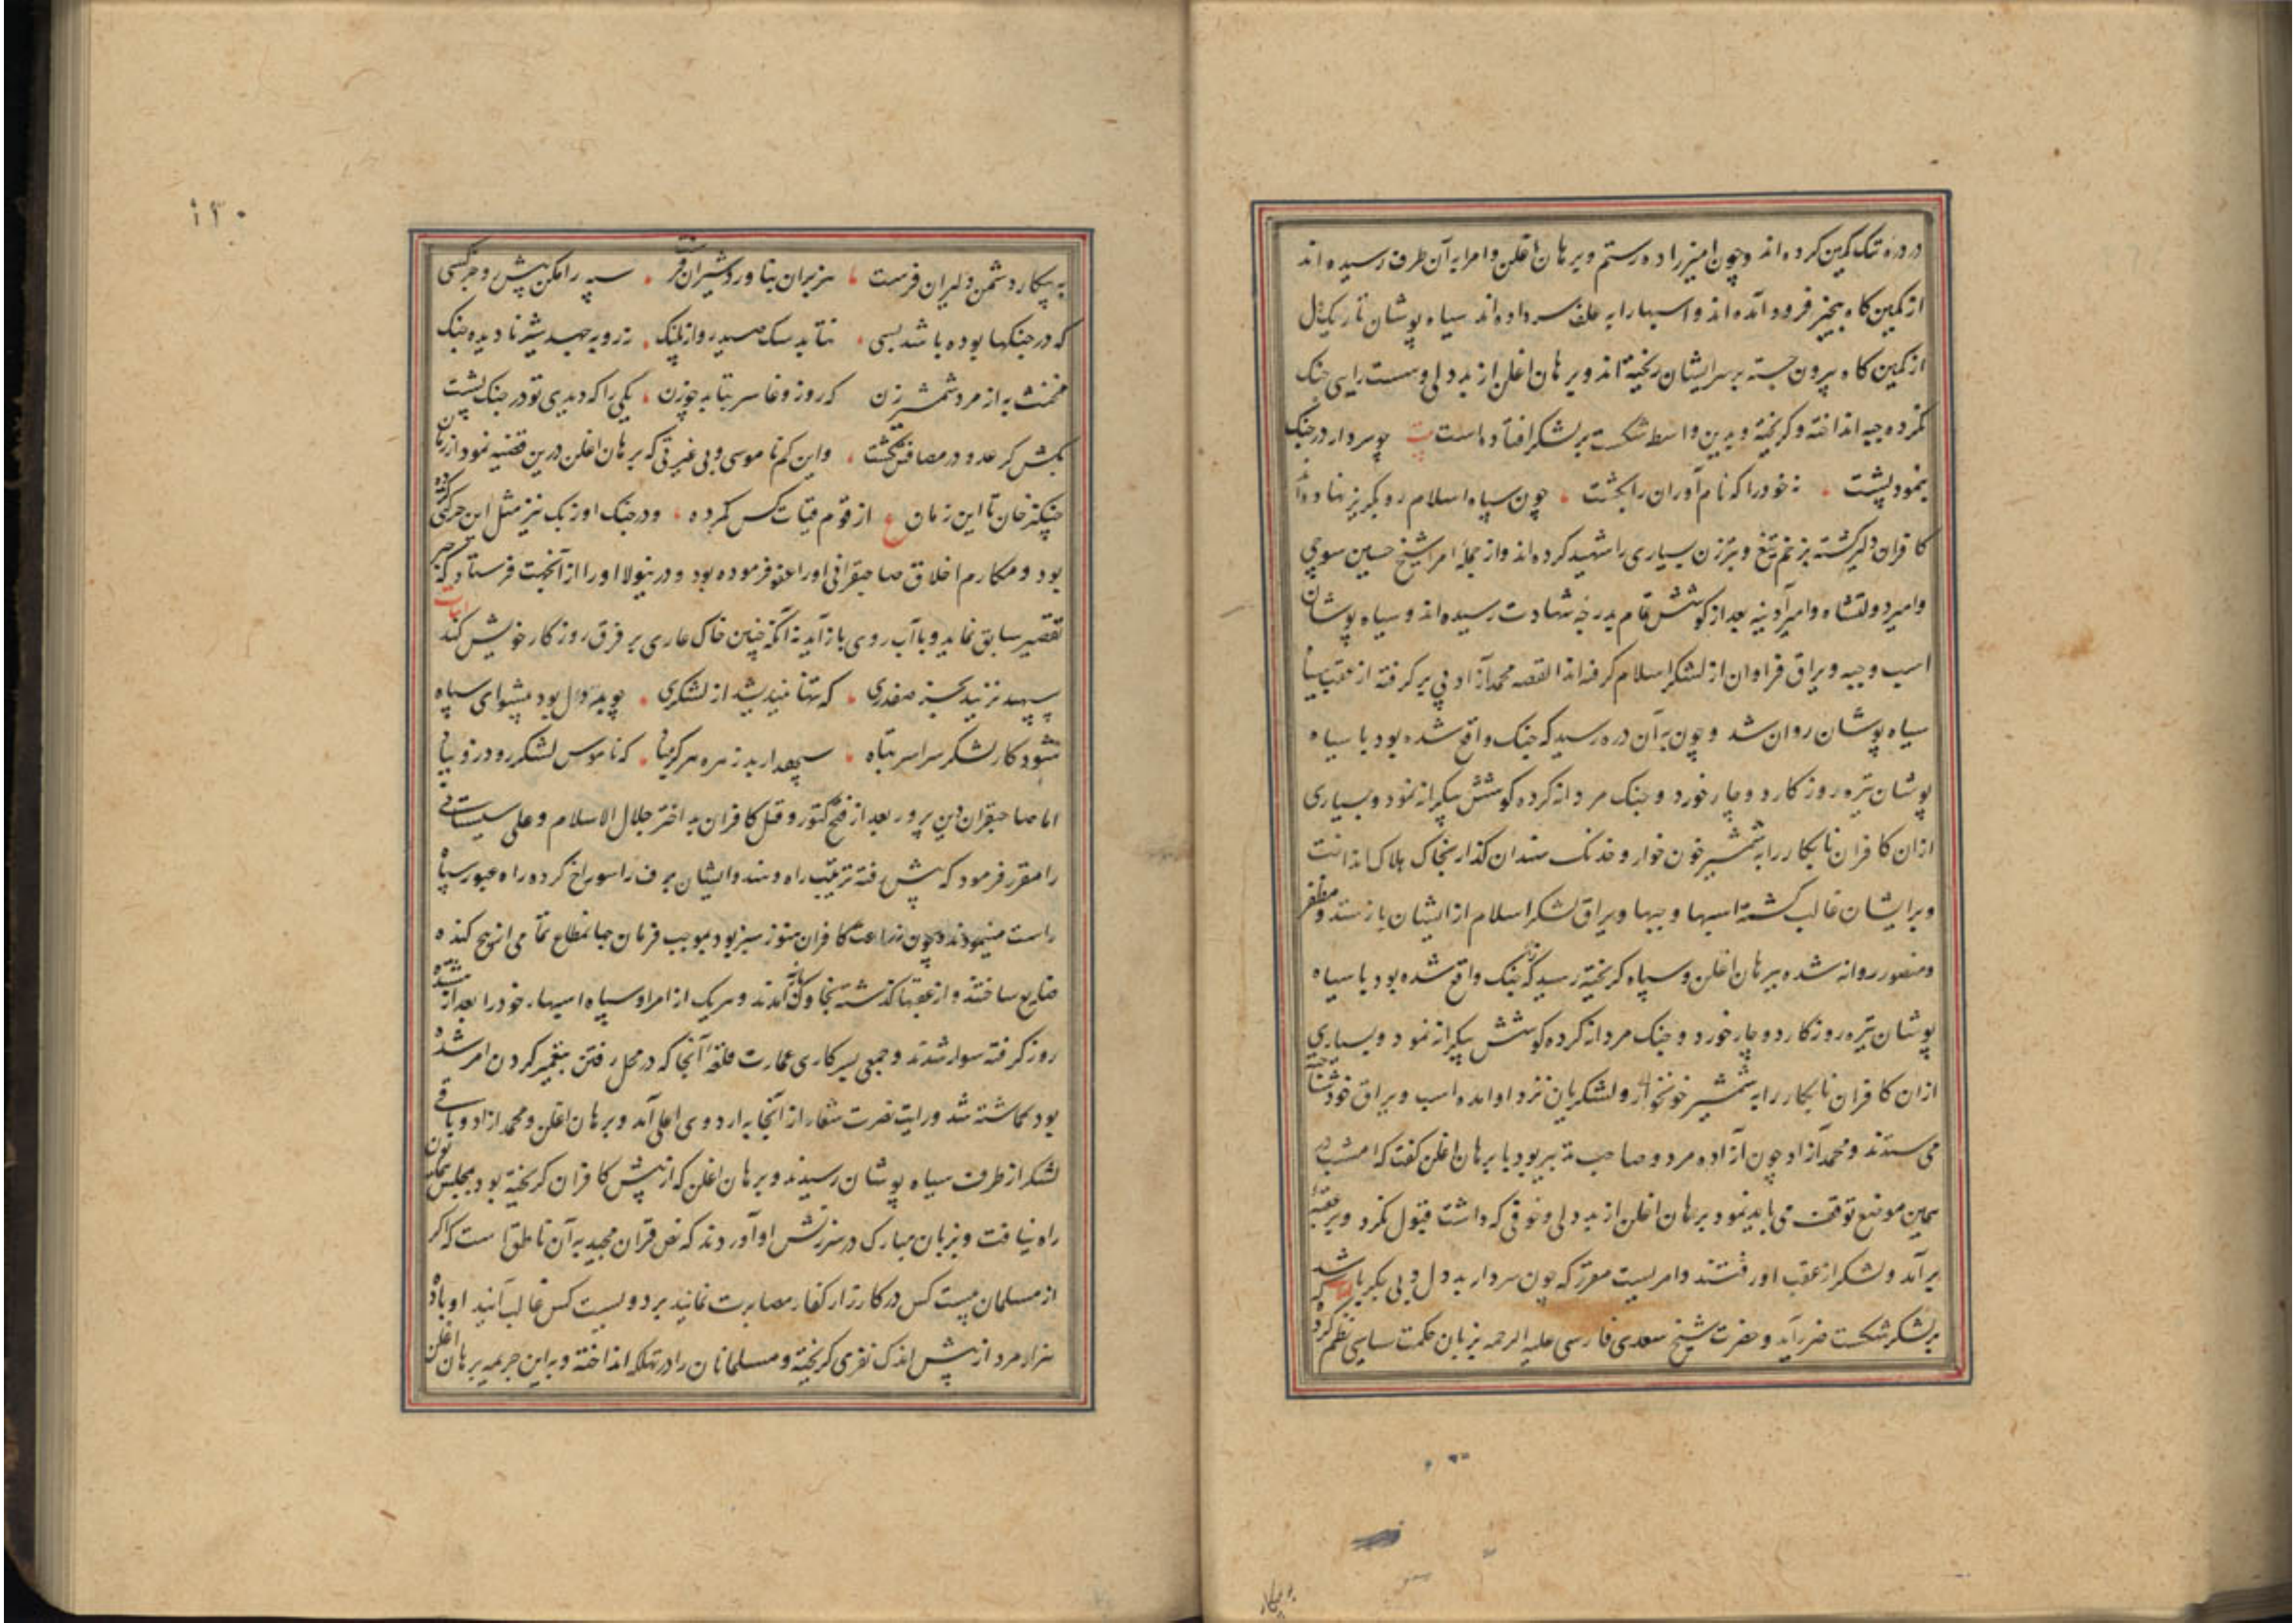 در دره تنک کمین کرده اند و چون امیرزاده رستم و برهان اغلن و امرا به آن طرف رسیده اند
از کمین کاه بیخبر فرود آمده اند و اسبها را به علف سر داده اند سیاه پوشان تاریک دل
از کمین کاه بیرون جسته بر سر ایشان ریخته اند و برهان اغلن از بد دلی و سست رایی جنک
نکرده جیبه انداخته و کریخته و بدین واسطه شکست بر لشکر افتاده است چو سردار در جنک
بنمود پشت نه خود را که نام آوران را بکشت چون سپاه اسلام رو بکریز نهاده اند
کافران دلیر کشته بزخم تیغ و تبرزین بسیاری را شهید کرده اند و از جمله امرا شیخ حسین سوچی
و امیر دولتشاه و امیر آدینه بعد از کوشش تمام بدرجه شهادت رسیده اند و سیاه پوشان
اسب و جیبه و یراق فراوان از لشکر اسلام کرفته اند القصه محمد آزاد پی بر کرفته از عقب
سیاه پوشان روان شد و چون به آن دره رسید که جنک واقع شده بود با سیاه
پوشان تیره روزکار دوچار خورد و جنک مردانه کرده کوشش بیکرانه نمود و بسیاری
ازان کافران نابکار را به شمشیر خون خوار و خدنک سندان کذار بخاک هلاک انداخت
و بر ایشان غالب کشته اسبها و جیبها و یراق لشکر اسلام از ایشان باز ستد و مظفر
و منصور روانه شده ببرهان اغلن و سپاه کریخته رسید که جنک واقع شده بود با سیاه
پوشان تیره روزکار دوچار خورد و جنک مردانه کرده کوشش بیکرانه نمود و بسیاری
ازان کافران نابکار را به شمشیر خونخوار و لشکریان نزد او آمده اسب و یراق خود شناخته
می ستدند و محمد آزاد چون آزاده مرد و صاحب تدبیر بود با برهان اغلن کفت که امشب در
همین موضع توقف می باید نمود برهان اغلن از بد دلی و خوفی که داشت قبول نکرد و بر عقبه
بر آمد و لشکر از عقب او رفتند و امریست مقرر که چون سردار بد دل و بی جکر باشد
بر لشکر شکست ضرر آید و حضرت شیخ سعدی فارسی علیه الرحمه بزبان حکمت سیاسی نظم کرده
به پیکار
۱۳۰
به پیکار دشمن دلیران فرست هزبران بناورد شیران فرست سپه را مکن پیش رو جز کسی
که در جنکها بوده باشد بسی نتابد سک صید رو از پلنک ز روبه جهد شیر نادیده جنک
مخنث به از مرد شمشیر زن که روز وغا سر بتابد چو زن یکی را که دیدی تو در جنک پشت
بکش کر عدو در مصافش نکشت و این کم ناموسی و بی غیرتی که برهان اغلن درین قضیه نمود از زمان
چنکیز خان تا این زمان از قوم قیات کس نکرده و در جنک اوزبک نیز مثل این حرکتی کرده
بود و مکارم اخلاق صاحبقرانی او را عفو فرموده بود و درینولا او را از آنجهت فرستاد که جبر
تقصیر سابق نماید و با آب روی باز آید نه آنکه چنین خاک عاری بر فرق روزکار خویش کند ابیات
سپهبد نزیبد بجز صفدری که تنها نیندیشد از لشکری چو بد دل بود پیشوای سپاه
شود کار لشکر سراسر تباه سپهدار بد زهره هرکز مباد که ناموس لشکر رود زو بباد
اما صاحبقران دین پرور بعد از فتح کتور و قتل کافران بد اختر جلال الاسلام و علی سیستانی
را مقرر فرمود که پیش رفته ترتیب راه دهند و ایشان برف را سوراخ کرده راه عبور سپاه
راست مینمودند و چون زراعت کافران هنوز سبز بود بموجب فرمان جهانمطاع تمامی از بیخ کنده
ضایع ساختند و از عقبها کذشته بخاوک آمدند و هر یک از امرا و سپاه اسبها خود را بعد از
روز کرفته سوار شدند و جمعی بسرکاری عمارت قلعه آنجا که در محل رفتن بتعمیر کردن امر شده
بود کماشته شد و رایت نصرت شعار از آنجا به اردوی اعلی آمد و برهان اغلن و محمد آزاد و باقی
لشکر از طرف سیاه پوشان رسیدند و برهان اغلن که از پیش کافران کریخته بود بمجلس همایون
راه نیافت و بزبان مبارک در سرزنش او آوردند که نص قران مجید به آن ناطق است که اکر
از مسلمان بیست کس در کارزار کفار مصابرت نمایند بر دویست کس غالب آیند او با ده
هزار مرد از پیش اندک نفری کریخته و مسلمانان را در تهلکه انداخته و به این جریمه برهان اغلن